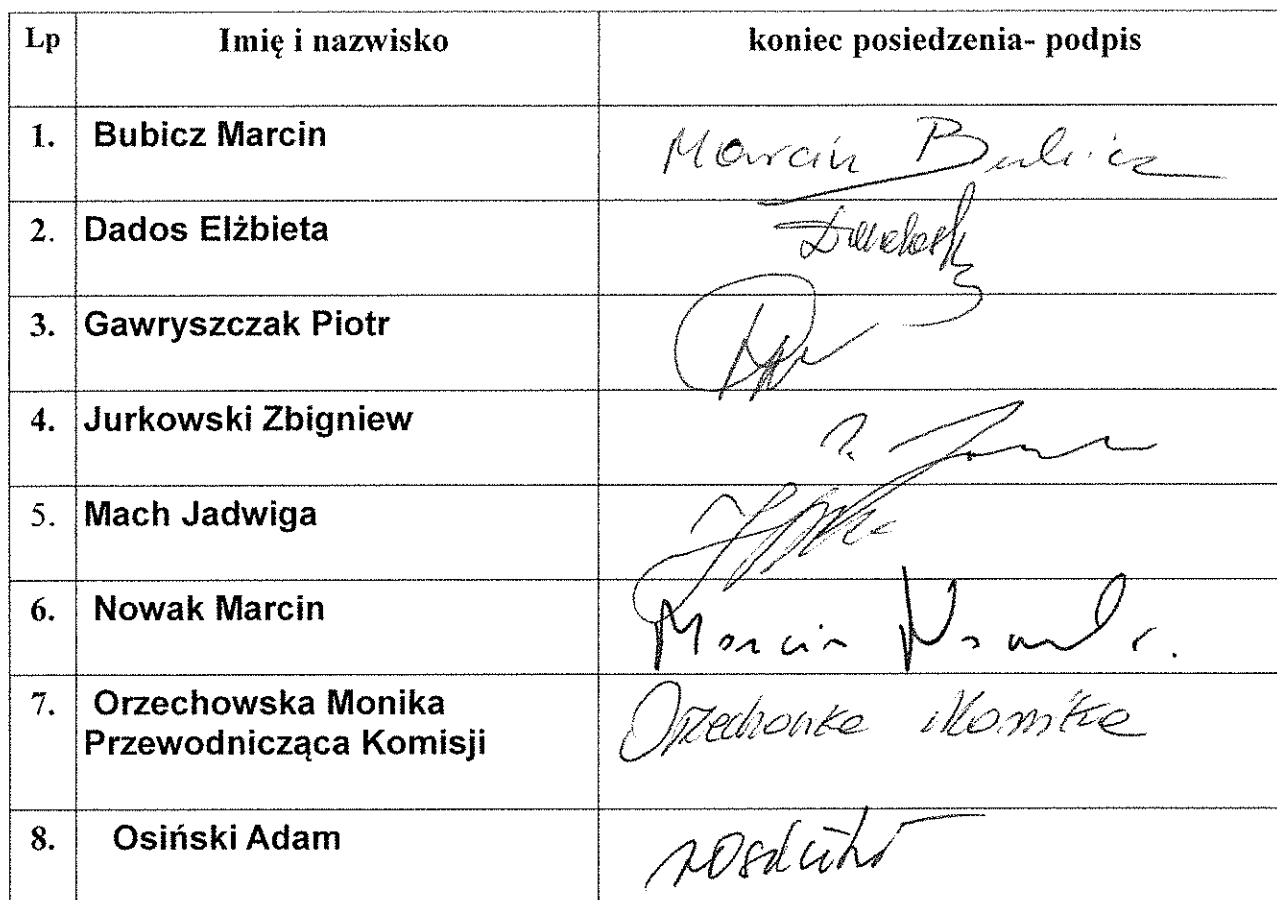 Lp Imię i nazwisko koniec posiedzenia- podpis
1. Bubicz Marcin Marcin Bubicz
2. Dados Elżbieta
3. Gawryszczak Piotr
4. Jurkowski Zbigniew
5. Mach Jadwiga
6. Nowak Marcin Marcin Nowak
7. Orzechowska Monika Orzechowska Monika
Przewodnicząca Komisji
8. Osiński Adam